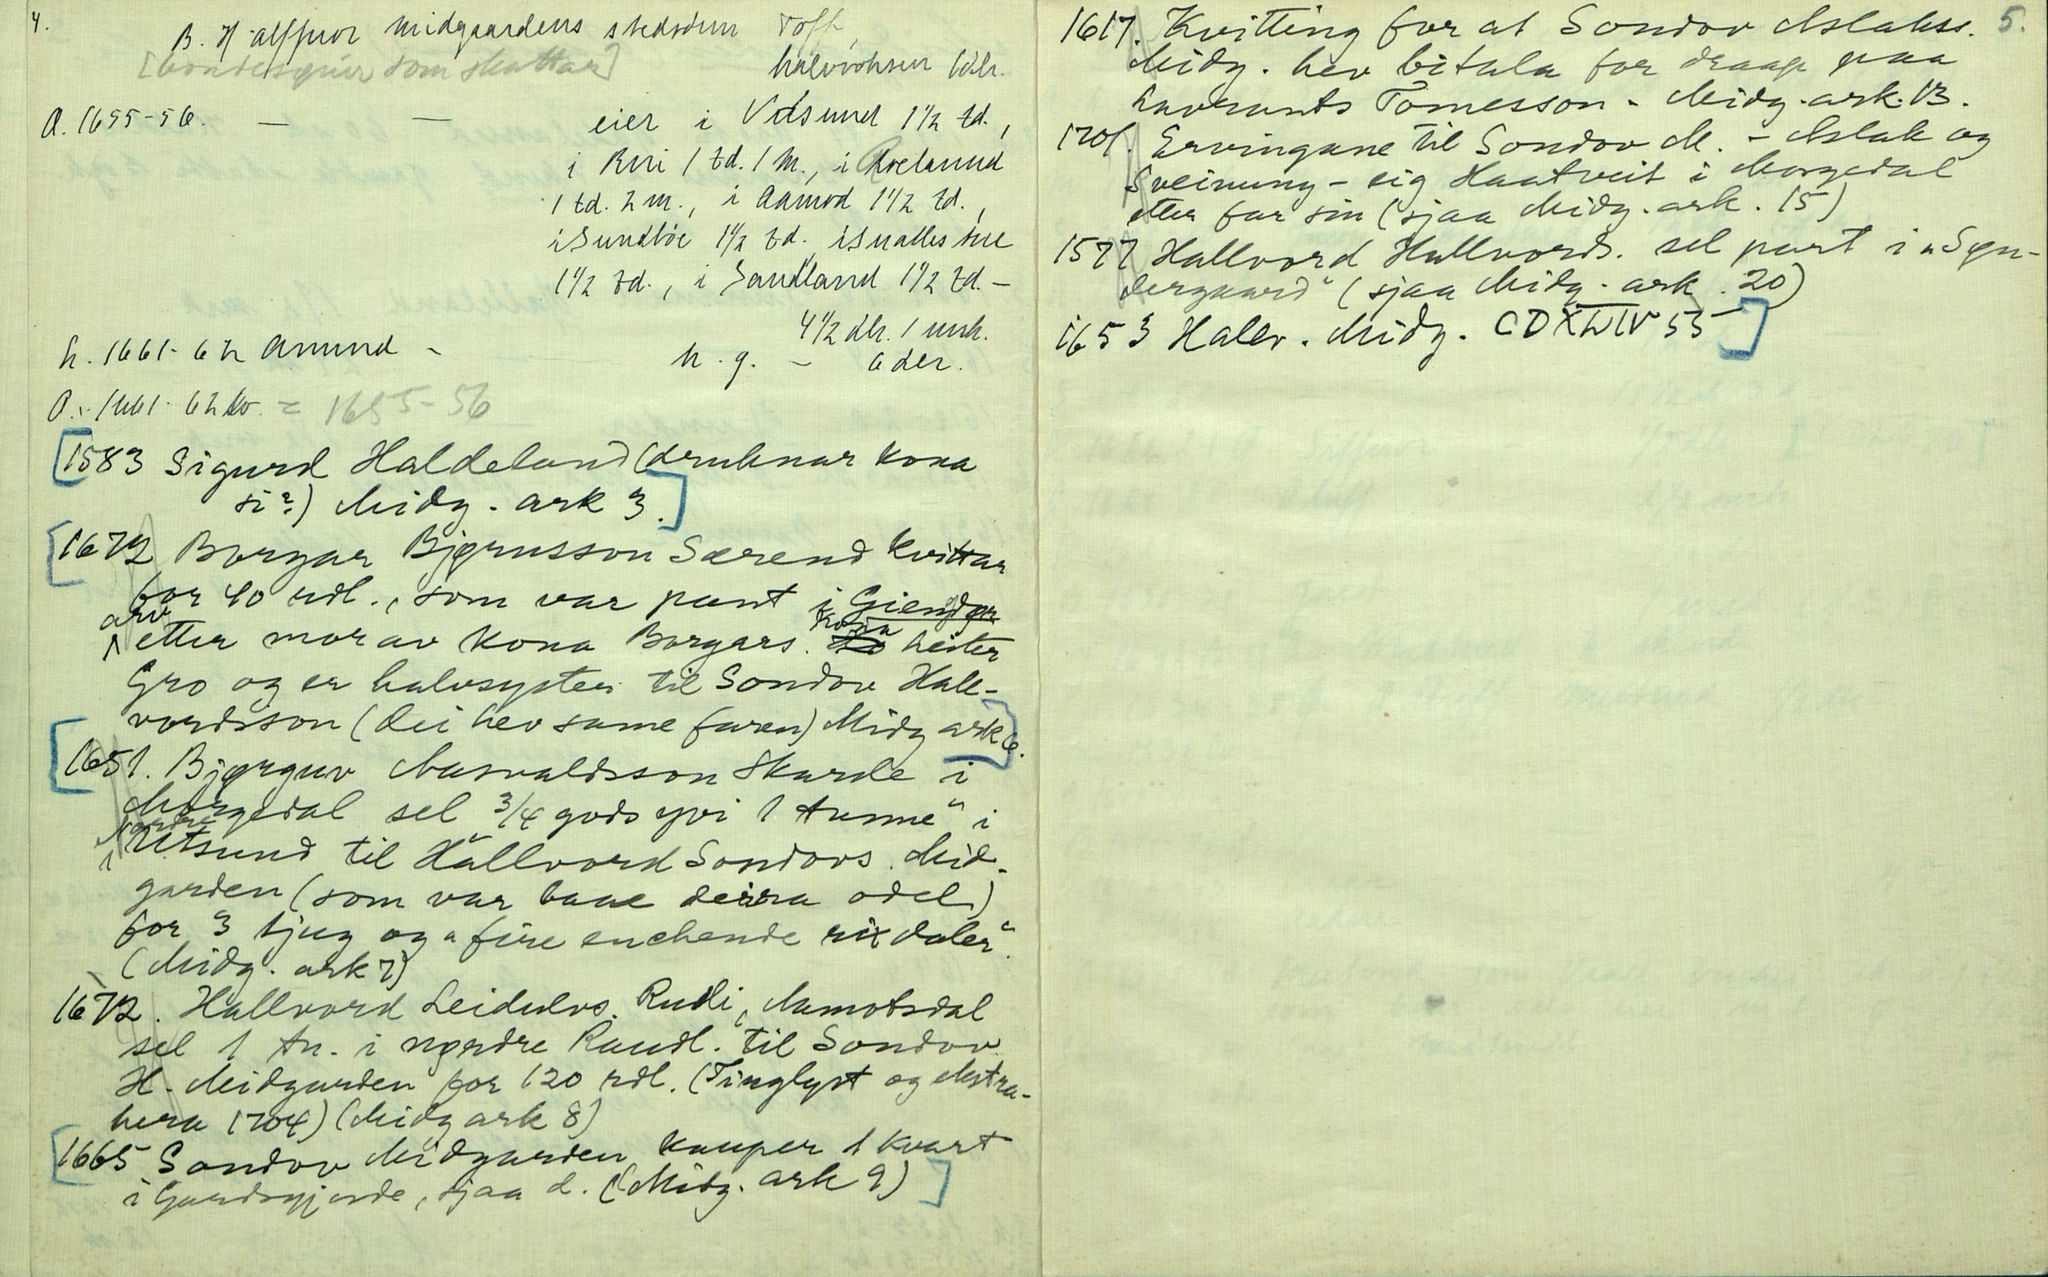 4.
B. Halffuor midgaardens stedsøun Toff,
[bondesønir som skattar]
halwoksen 1dlr.
O. 1655-56. — — eier i Vdsund 1½ td.,
i Rui 1 td. 1 m., i Roelannd
1 td. 2 m., i Aamod 1½ td.,
i Sundbøe 1½ td.
1½ td., i Sandland 1½ td. —
4½ dlr. 1 mrk.
h. 1661-62 Amund - h. g. — 6 der.
O. 1661-62 = 1655-56
[1583 Sigurd Haldeland (druknar kona
si?) Midg. ark 3.]
[1672 Borgar Bjørnsson Særend kvittar
for 40 rdl., som var pant i
arv etter mor av kona Borgars. Kona heiter
Gro og er halvsyster til Sondov Hall-
vordsson (dei hev same faren) Midg ark 6.]
[1651. Bjørguv Aasvaldsson Skarde i
Morgedal sel ¾ gods yvi 1 tunne" i
i Nordre Utsund til Hallvord Sondovs. Mid-
garden (som var baae deira odel)
for 3 tjug og "fire enchende rix daler".
(Midg. ark 7)
1672. Hallvord Leidulvs. Rudi, Aamotsdal
sel 1 tn. i nørdre Raudl. til Sondov
H. Midgarden for 120 rdl. (Tinglyst og
1704) (Midg ark 8)
[1665 Sondov Midgarden kauper 1 kvart
i Gardsgjorde, sjaa d. (Midg. ark 9)]
5.
1617. Kvitting for at Sondov Aslakss.
Midg. hev bitala for draap paa
Lavrants Tomesson - Midg. ark. 13.
1701. Ervingane til Sondov M. - Aslak og
Sveinung - eig Haatveit i Morgedal
etter far sin (sjaa Midg. ark. 15)
1577 Hallvord Hallvords. sel part i "Syn-
dergaard" (sjaa Midg. ark. 20)
1653 Halv. Midg. CDXLIV 55]